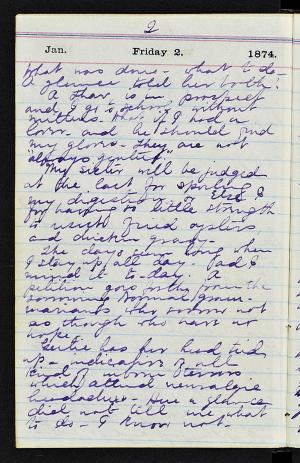 2
Jan. Friday 2. 1874.
what was done - what to do -
A glance told her both!
A thaw is in prospect
and I go to school without
mittens. What if I had a
lover and he should find
my gloves - they are not
"always gentle".
My sister will be judged
at the last for spoiling
my digestion
for having so little strength
to resist fried oysters,
and chicken gravy.
The days seem long when
I stay up all day. Had I
mind it to-day. A
petition goes forth from the
Normal
who
so though who have no
vote.
has her head tied
up - indicative of all
kind of inborn terrors
which attend neuralgic
headaches - Here a glance
did not tell me what
to do - I know not.